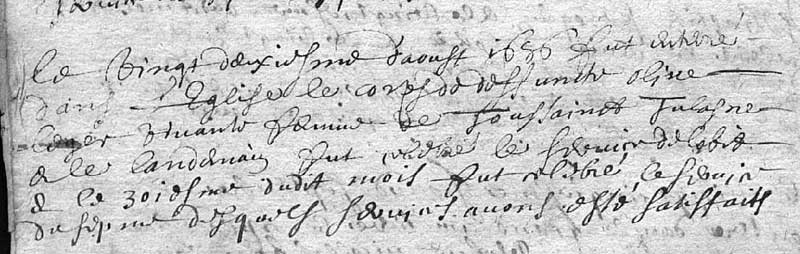 le vingt deuxiesme d'aoust 1656 fut enterré
dans l'Eglise le corps de deffuncte olive
vivante femme de Toussainct
& le landemain fut celebré le service de l'obit
& le 30iesme dudit mois fut celebré le service
du sepme desquels services avons esté satisfaits